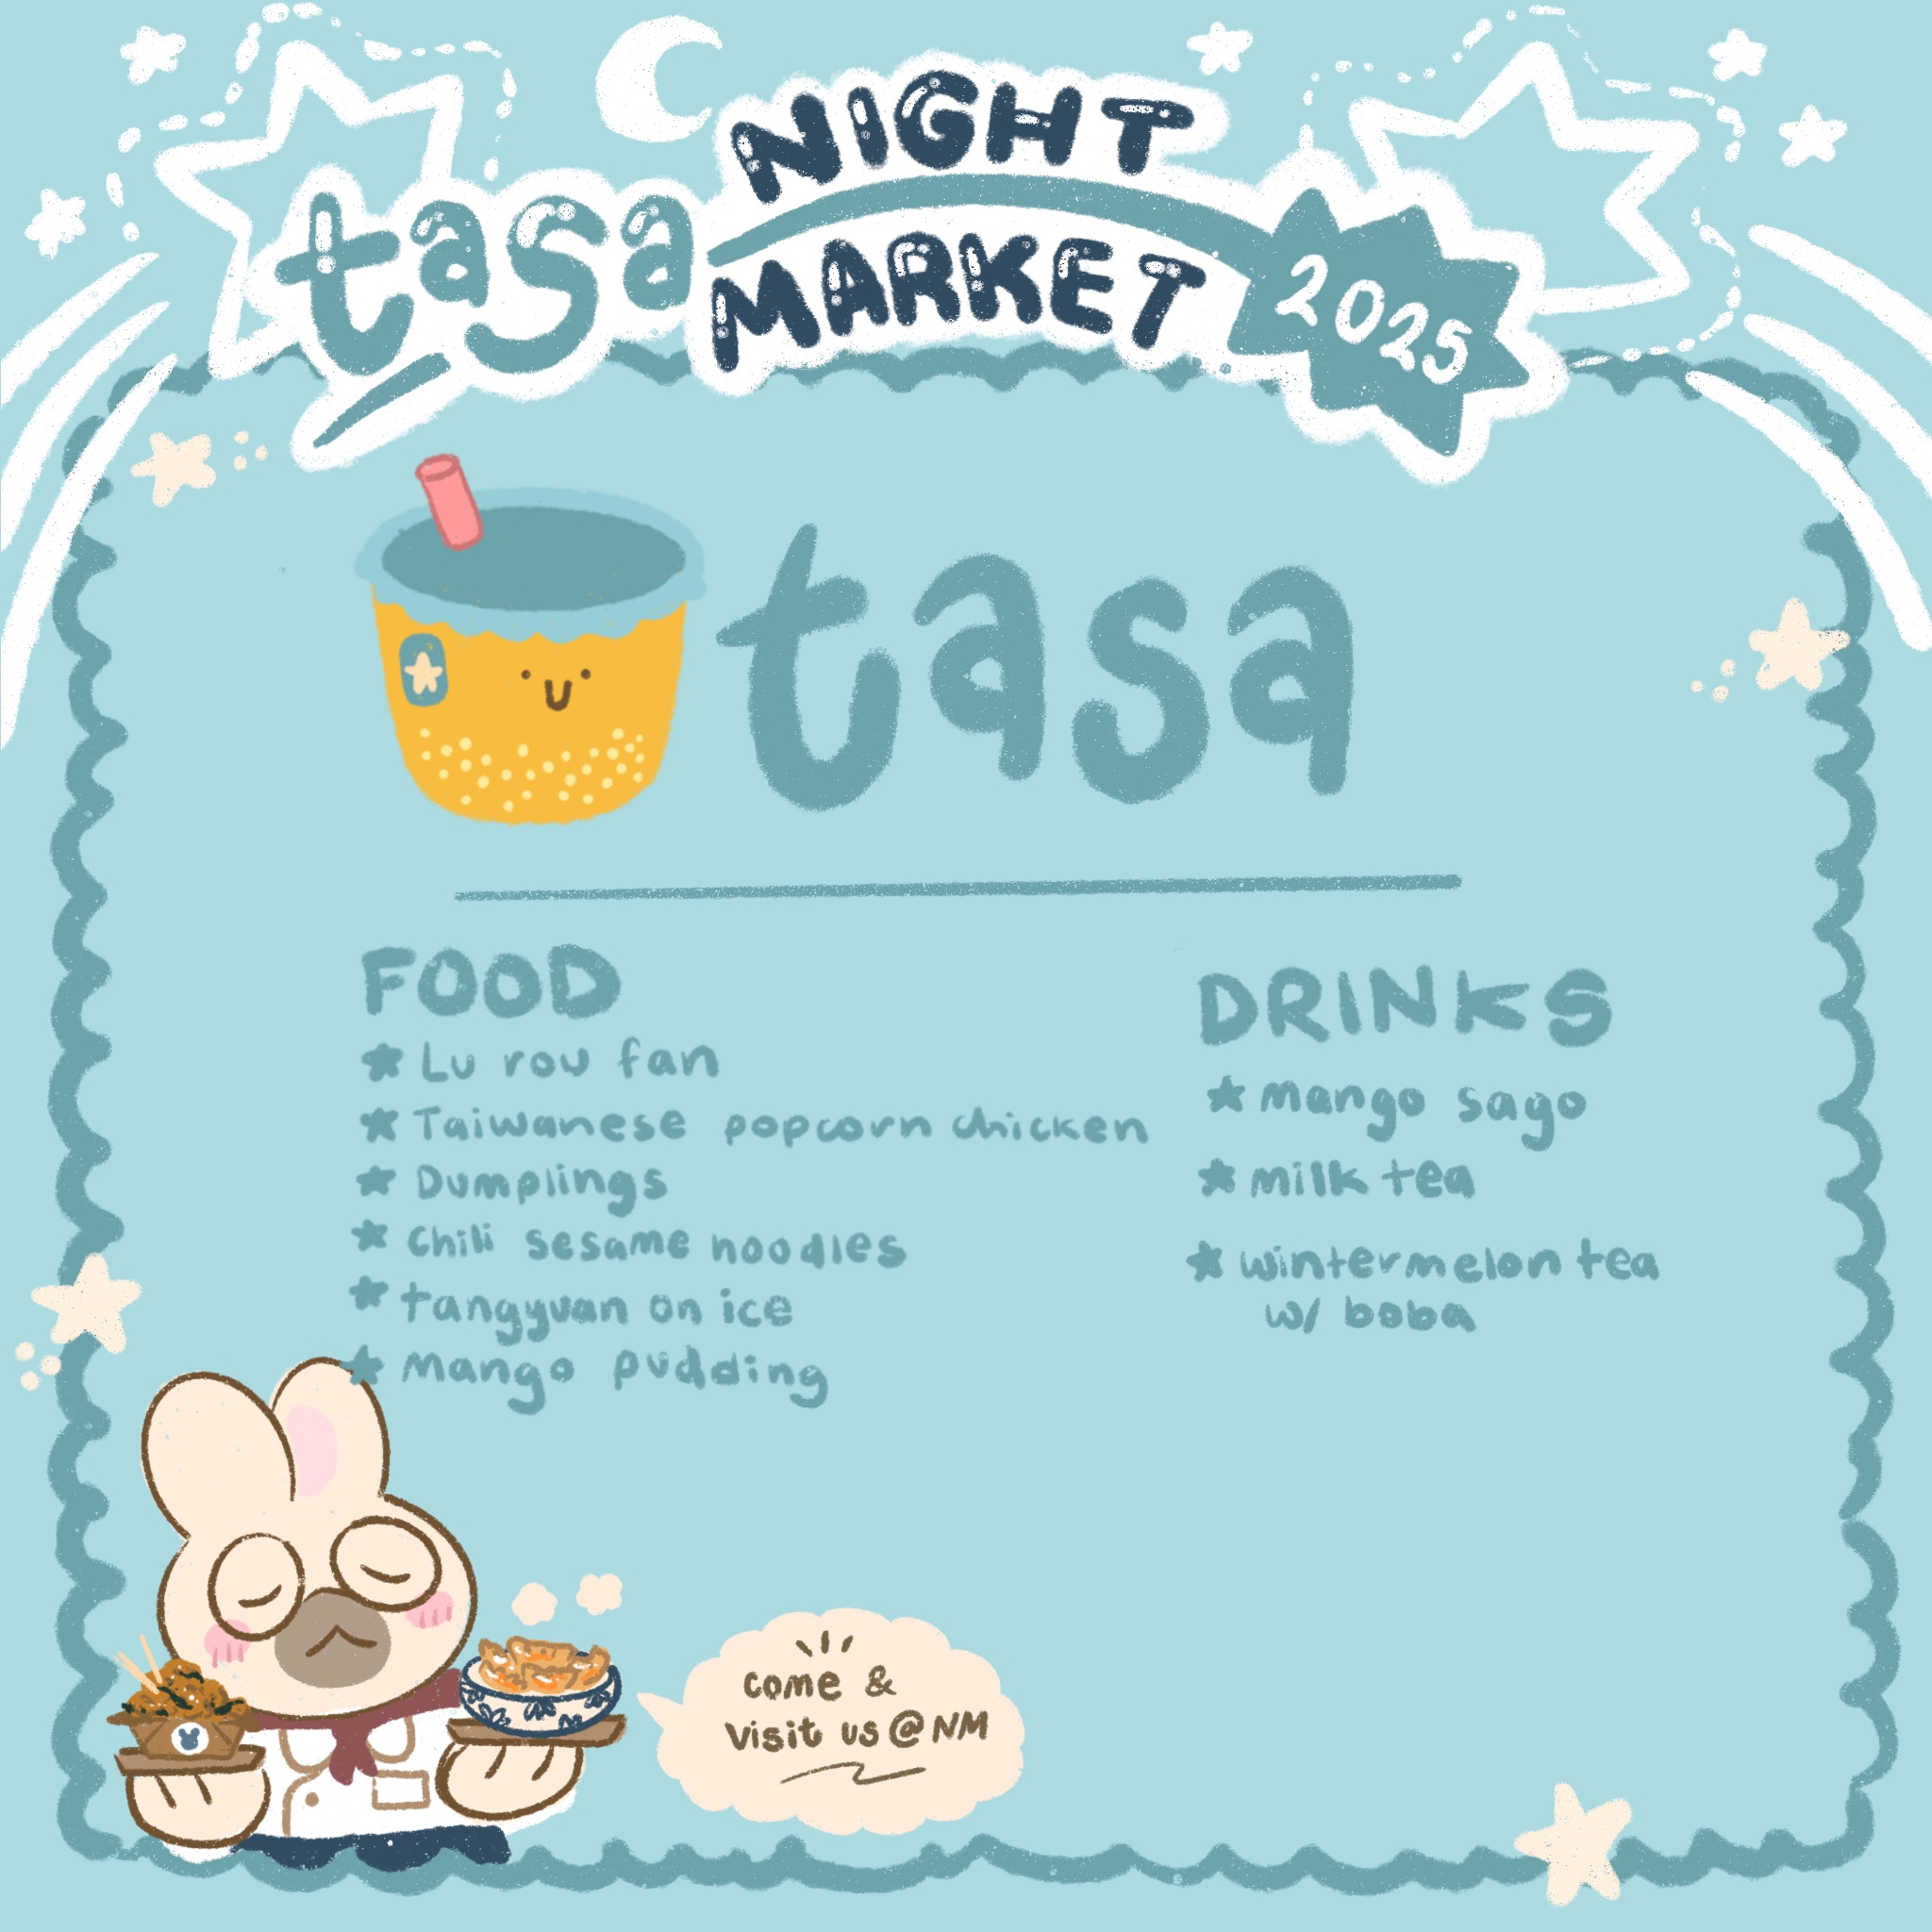 tasa NIGHT MARKET 2025
tasa
FOOD
Lu rou fan
Taiwanese popcorn chicken
Dumplings
Chili sesame noodles
tangyuan on ice
Mango pudding
DRINKS
mango sago
milk tea
wintermelon tea
w/ boba
come &
visit us @ NM